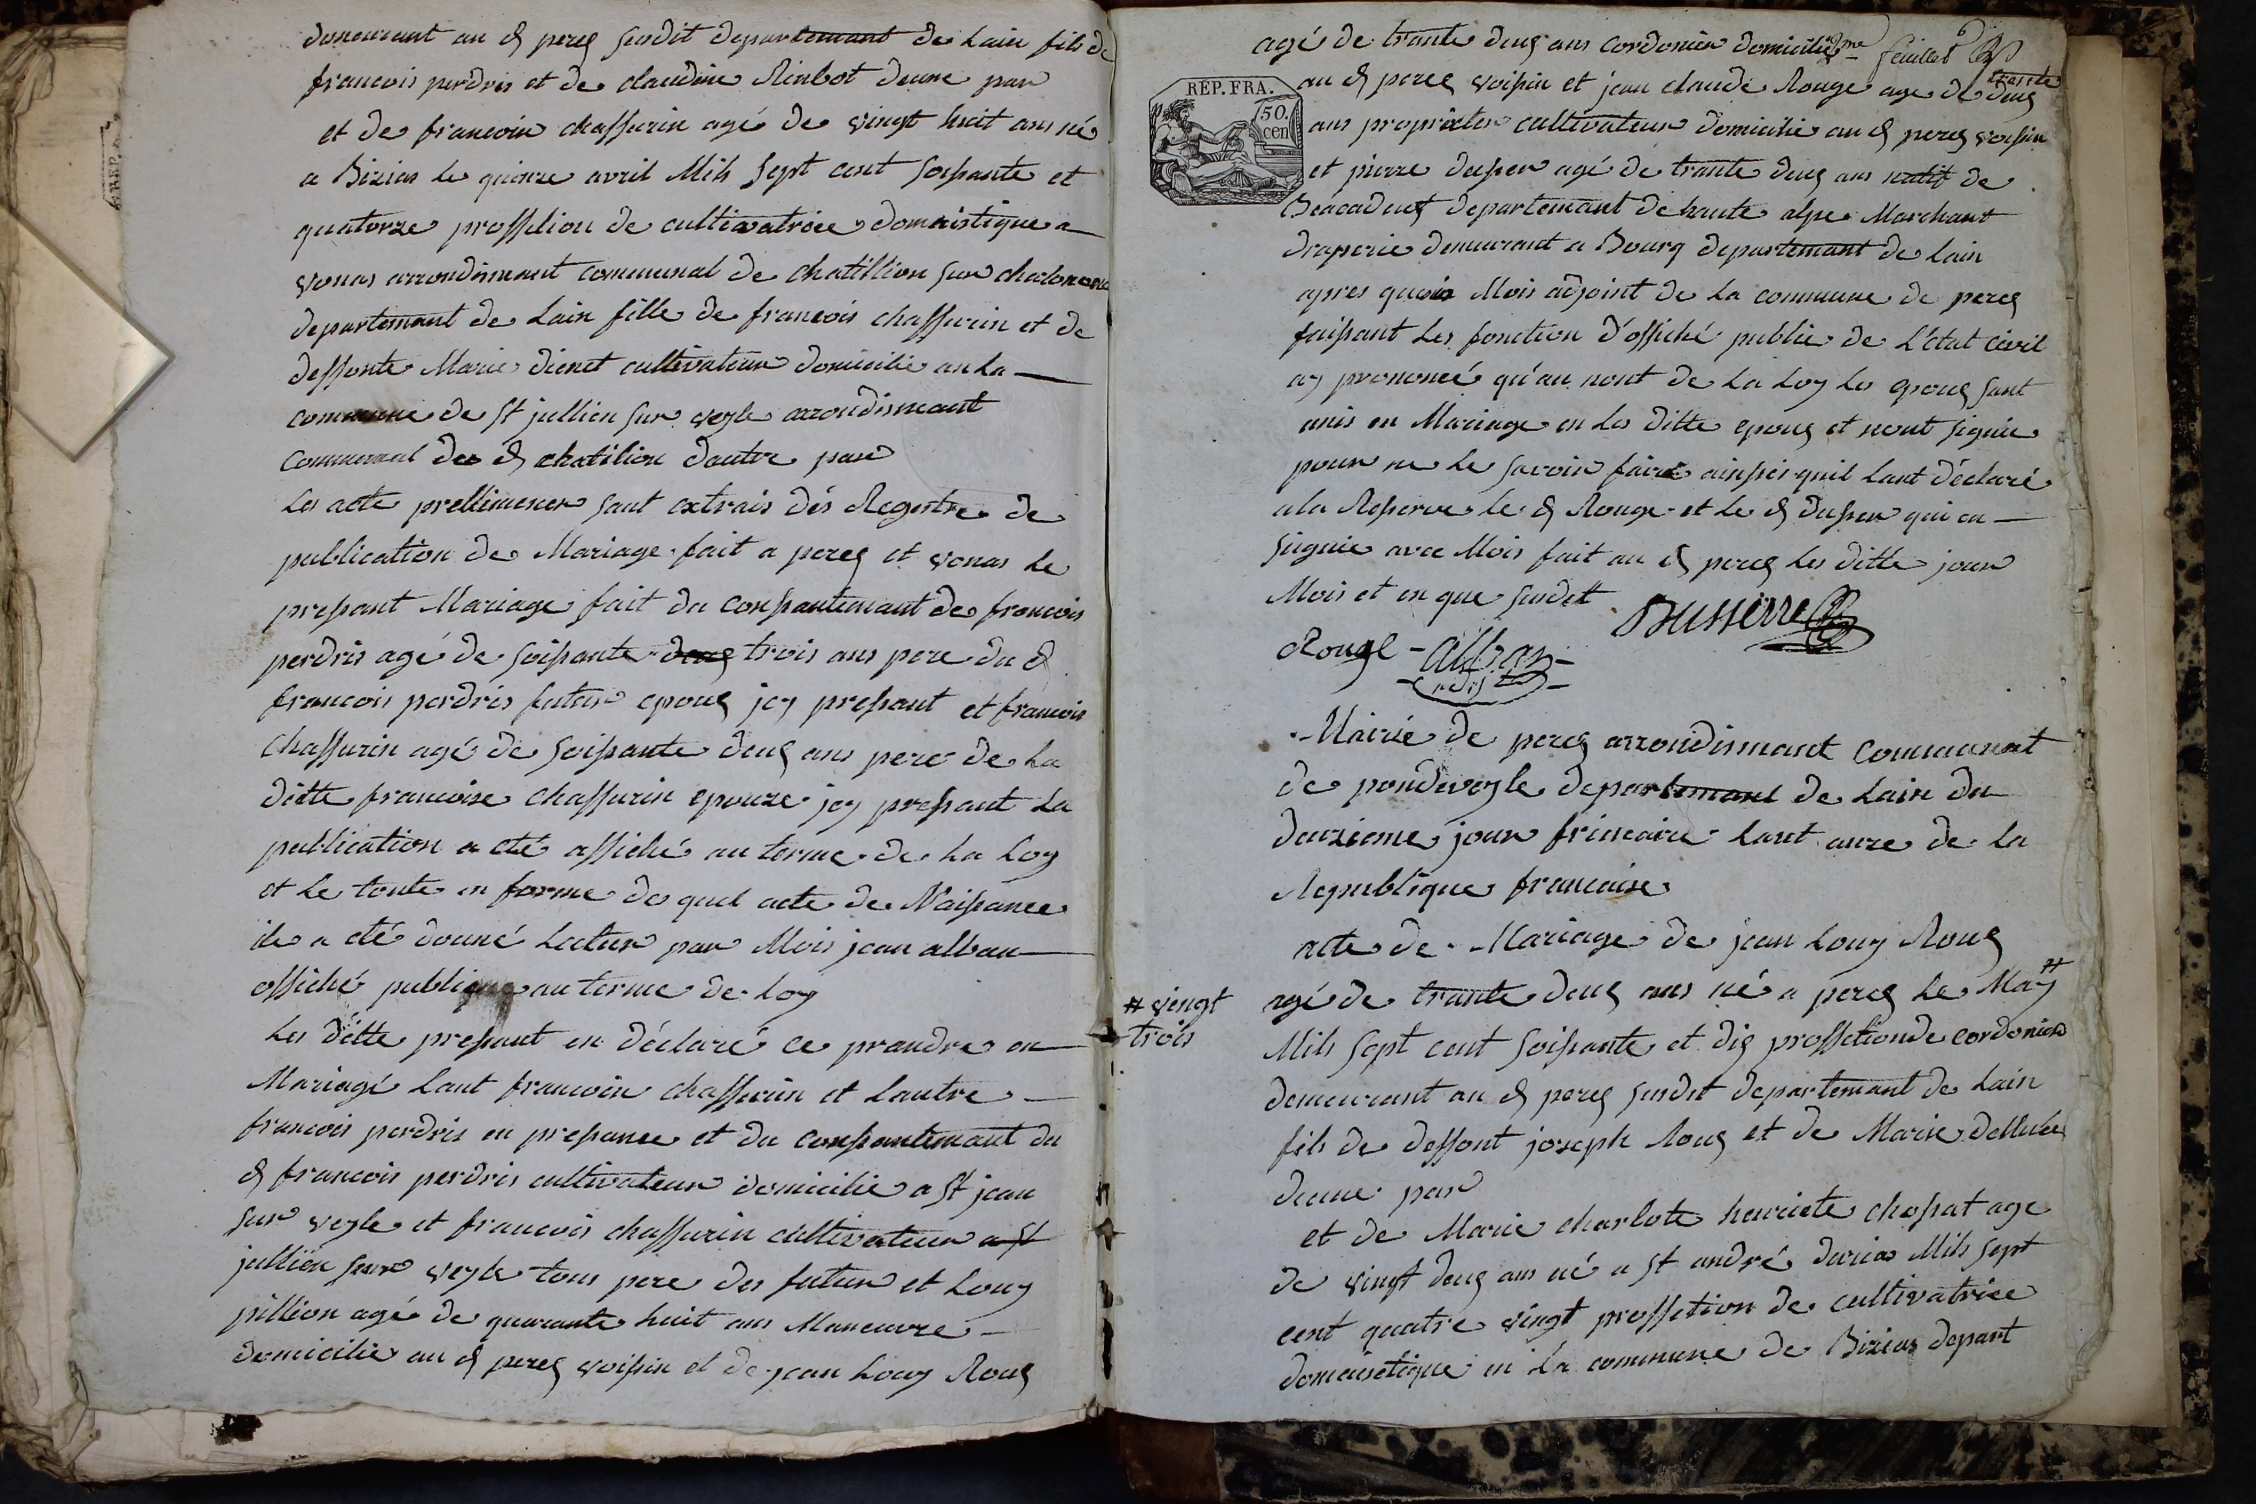 demeurant au d perex susdit departemant de Lain fils de
francois perdrix et de claudine Rinbot deune par
et de francoin chaffurin agé de vingt huit ans né
a Bizias le quinze avril Mils sept cent soissante et
quatorze proffetion de cultivatrice domaistique a
vonas arrondismant communal de chatillion sur chalaronne
departemant de Lain fille de francois chaffurin et de
deffonte Marie dienet cultivateur domicilie an La
commune de st jullien sur veyle arrondismeant
communal de d chatilion dautre par
Les acte prelliminer sont extrais dés Regestre de
publication de Mariage fait a perex et vonas Le
pressant Mariage fait du conssantemant de francois
perdris agé de soissante deux trois ans pere du d
francois perdris futur epoux jcy pressant et francois
Chaffurin agé de soissante deux ans pere de La
ditte francoise chaffurin epouze jcy pressant La
publication a eté affiché au terme de La Loy
et Le toute en forme de quel acte de Naissance
ile a eté donné Lectur par Mois jean alban
offiché publique au terme de Loy
Les ditte pressant en déclaré ce prandre en
Mariagé Lant francoin chaffurin et Lautre
francois perdris en pressance et du conssantemant du
d francois perdris cultivateur domicilie a st jean
sur veyle et francois chaffurin cultivateur a st
jullien sur veyle tous pere des futur et Louy
pillion agé de quarante huit ans Maneuvre
domicilie au d perex voissin et de jean Louy Roux
6me feuillet
agé de trante deux ans cordonier domicilie
REP. FRA.
50. cen
au d perex voissin et jean claude Rouge age de trante deux
ans proprieter cultivateur domicilie au d perex voissin
et pierre dusser agé de trante deux ans natif de
departemant de haute alpe Marchant
draperie demeurant a Bourg departemant de Lain
apres quois Mois adjoint de La commune de perex
faissant Les fonction d'offiché public de L'Etat civil
ay prononcé qu'au nont de La Loy Les epoux sont
unis en Mariage en Les ditte epoux et nont signie
pour ne Le savoir faire ainssis quil Lant déclaré
a la Resserve Le d Rouge et Le d dusser qui en
signie avec Mois fait au d perex Les ditte jour
Mois et en que susdit
Busserre
Rouge - alban -
adjt
Mairie de perex arrondismant communal
de pondeveyle departemant de Lain du
deuzieme jour frimaire Lant onze de La
Republique francaise
acte de Mariage de jean Louy Roux
agé de trante deux ans né a perex Le # May
# vingt
trois
Mils sept cent soissante et dix proffetion de cordonier
demeurant au d perex susdit departemant de Lain
fils de deffont joseph Roux et de Marie
deune par
et de Marie charlote henriete chossat age
de vingt deux ans né a st andré Mils sept
cent quatre vingt proffetion de cultivatrice
domaistique en La commune de Bizias depart